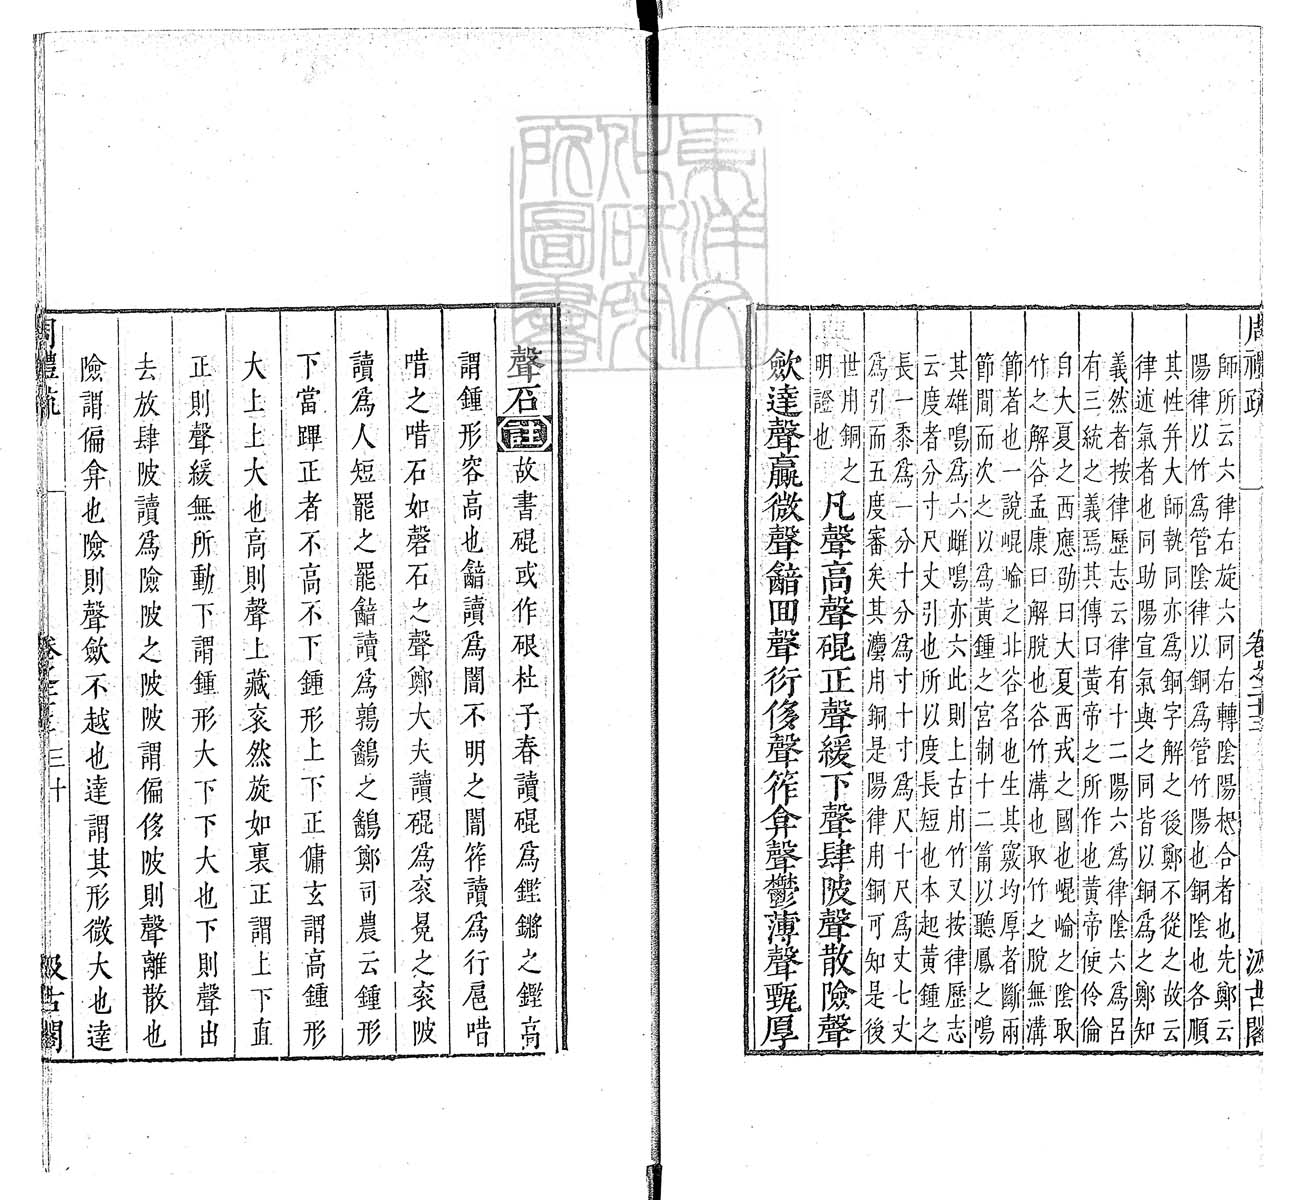 周禮疏 卷之二十三 汲古閣
師所云六律右旋六同右轉陰陽相合者也先鄭云
陽律以竹爲管陰律以銅爲管竹陽也銅陰也各順
其性并大師執同亦爲銅字解之後鄭不從之故云
律述氣者也同助陽宣氣與之同皆以銅爲之鄭知
義然者按律歷志云律有十二陽六爲律陰六爲呂
有三統之義焉其傳曰黃帝之所作也黃帝使伶倫
自大夏之西應劭曰大夏西戎之國也崐崘之陰取
竹之解谷孟康曰解脫也谷竹溝也取竹之脫無溝
節者也一說崐崘之北谷名也生其竅均厚者斷兩
節間而次之以爲黃鍾之宮制十二筩以聽鳳之鳴
其雄鳴爲六雌鳴亦六此則上古用竹又按律歷志
云度者分寸尺丈引也所以度長短也本起黃鍾之
長一黍爲一分十分爲寸十寸爲尺十尺爲丈七丈
爲引而五度審矣其灋用銅是陽律用銅可知是後
世用銅之
明證也
凡聲高聲䃂正聲緩下聲肆陂聲散險聲
歛達聲贏微聲韽回聲衍侈聲筰弇聲鬱薄聲甄厚
聲石註故書䃂或作硍杜子春讀䃂爲鏗鏘之鏗高
謂鍾形容高也韽讀爲闇不明之闇筰讀爲行扈唶
唶之唶石如磬石之聲鄭大夫讀䃂爲袞冕之袞陂
讀爲人短罷之罷韽讀爲鶉䳺之䳺鄭司農云鍾形
下當踔正者不高不下鍾形上下正傭玄謂高鍾形
大上上大也高則聲上藏袞然旋如裏正謂上下直
正則聲緩無所動下謂鍾形大下下大也下則聲出
去放肆陂讀爲險陂之陂陂謂偏侈陂則聲離散也
險謂偏弇也險則聲歛不越也達謂其形微大也達
周禮疏 卷之二十三 三十 汲古閣
東洋文化研究所圖書